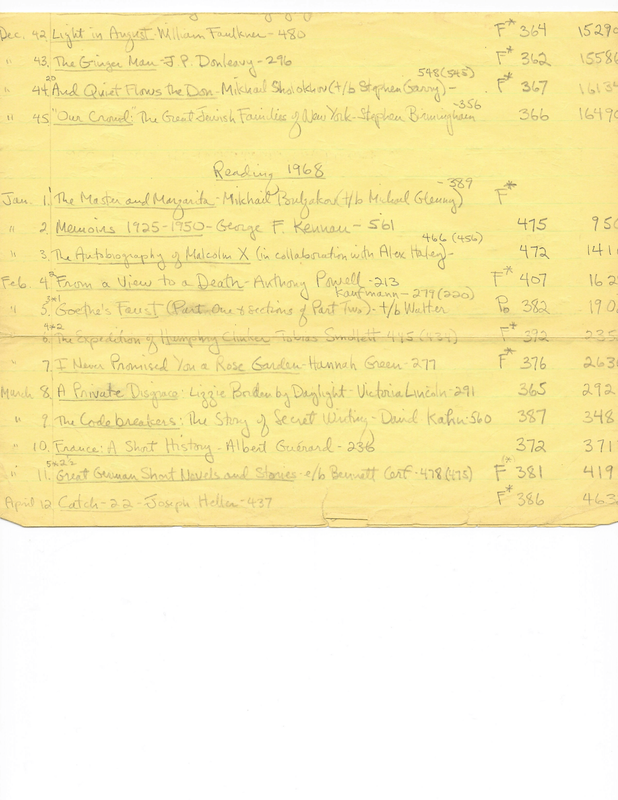 Dec. 42. Light in August - William Faulkner - 480 F* 364 1529
" 43. The Ginger Man - J P. Donleavy - 296 F* 362 1558
" 44. 20 And Quiet Flows the Don - Mikhail Sholokhov (t/b Stephen Garry) - 548 (545) F* 367 1613
" 45. "Our Crowd:" The Great Jewish Families of New York - Stephen Birmingham - 356 366 1649
Reading 1968
Jan. 1. The Master and Margarita - Mikhail Bulgakov (t/b Michael Glenny) - 389 F*
" 2. Memoirs 1925-1950 - George F. Kennan - 561 475 950
" 3. The Autobiography of Malcolm X (in collaboration with Alex Haley) - 466 (456) 472 141
Feb. 4. From a View to a Death - Anthony Powell - 213 F* 407 162
" 5. Goethe's Faust (Part One & sections of Part Two) - t/b Walter Kaufmann - 279 (220) Po 382 190
4*2 6. The Expedition of Humphry Clinker Tobias Smollett 445 F* 392 235
" 7. I Never Promised You a Rose Garden - Hannah Green - 277 F* 376 263
March 8. A Private Disgrace: Lizzie Borden by Daylight - Victoria Lincoln - 291 365 292
" 9. The Codebreakers: The Story of Secret Writing - David Kahn - 560 387 348
" 10. France: A Short History - Albert Guérard - 236 372 371
" 11. Great German Short Novels and Stories - e/b Bennett Cerf - 478 (475) F(*) 381 419
April 12. Catch-22 - Joseph Heller - 437 F* 386 463